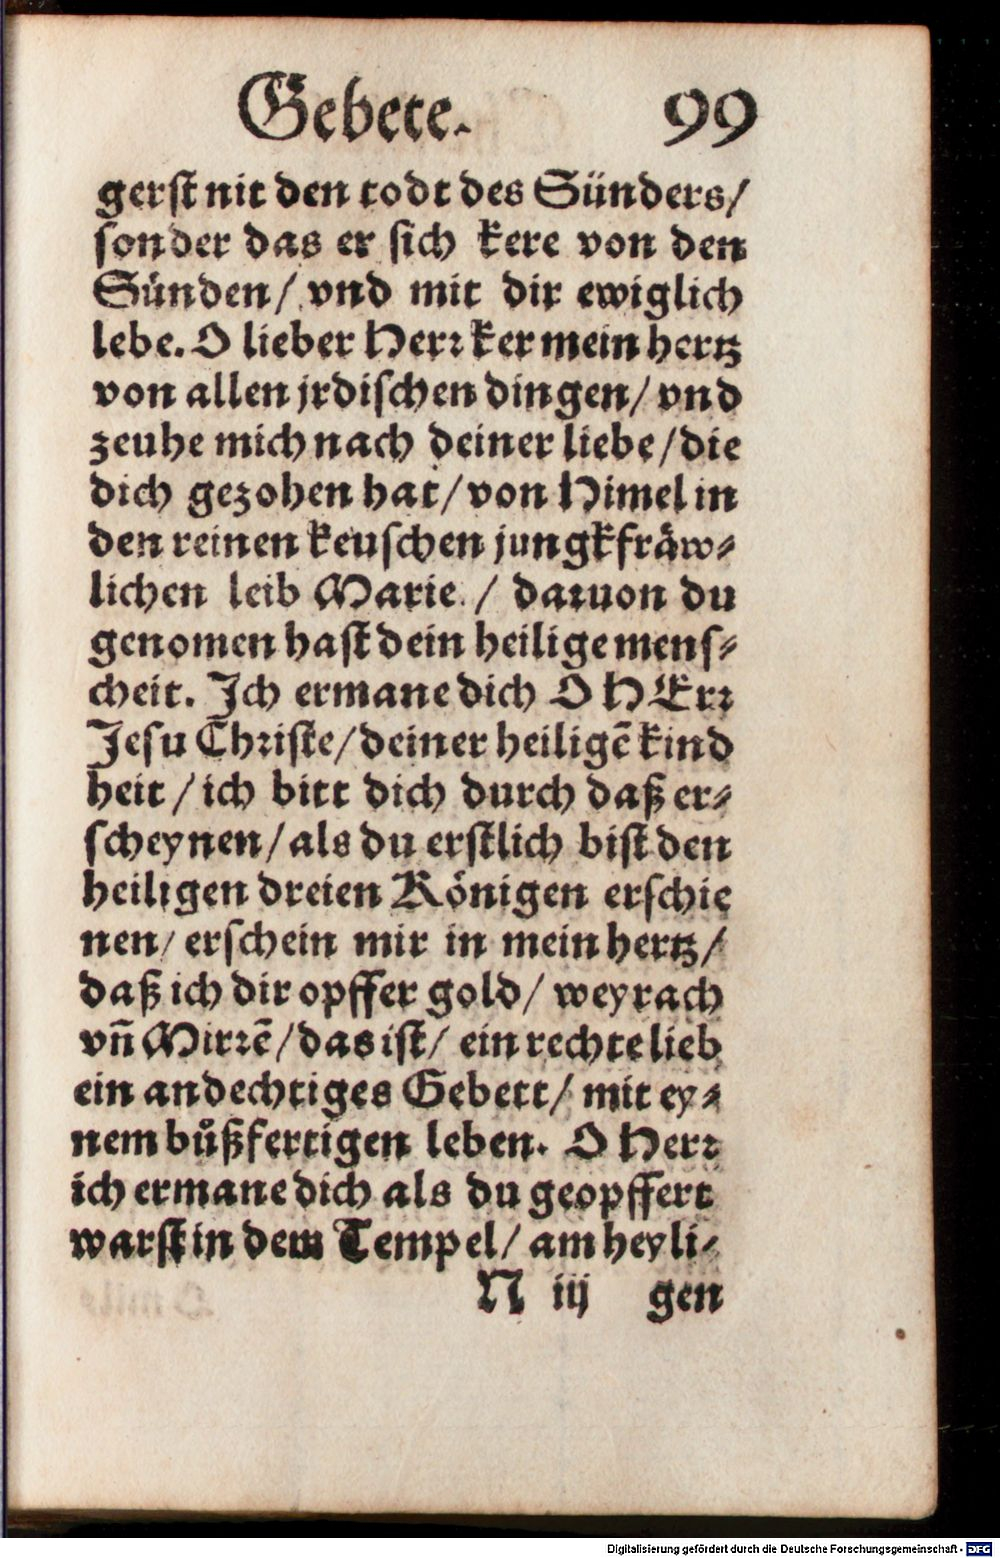 Gebete. 99
gerst nit den todt des Sünders/
sonder das er sich kere von den
Sünden/ vnd mit dir ewiglich
lebe. O lieber Herꝛ ker mein hertz
von allen jrdischen dingen/ vnd
zeuhe mich nach deiner liebe/ die
dich gezohen hat/ von Himel in
den reinen keuschen jungkfräw⸗
lichen leib Marie / daꝛuon du
genomen hast dein heilige mens⸗
cheit. Ich ermane dich O HErꝛ
Jesu Chꝛiste/ deiner heiligẽ kind
heit / ich bitt dich durch daß er⸗
scheynen/ als du erstlich bist den
heiligen dreien Königen erschie
nen/ erschein mir in mein hertz/
daß ich dir opffer gold/ weyrach
vñ Mirꝛẽ/ das ist/ ein rechte lieb
ein andechtiges Gebett/ mit ey⸗
nem bůßfertigen leben. O Herꝛ
ich ermane dich als du geopffert
warst in dem Tempel/ am heyli⸗
N iij gen
Digitalisierung gefördert durch die Deutsche Forschungsgemeinschaft - DFG